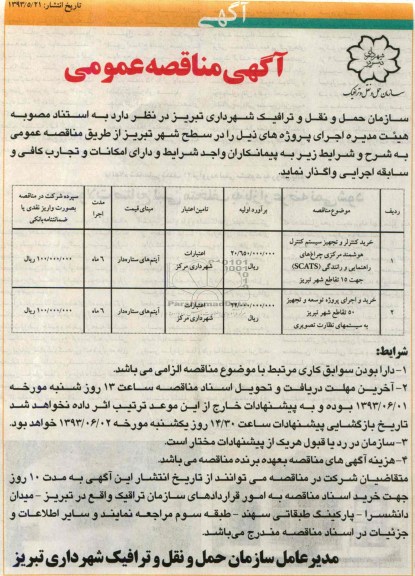 آگهی
تاریخ انتشار: ۱۳۹۳/۵/۲۱
آگهی مناقصه عمومی
سازمان حمل و نقل و ترافیک
سازمان حمل و نقل و ترافیک شهرداری تبریز در نظر دارد به استناد مصوبه
هیئت مدیره اجرای پروژه های ذیل را در سطح شهر تبریز از طریق مناقصه عمومی
به شرح و شرایط زیر به پیمانکاران واجد شرایط و دارای امکانات و تجارب کافی و
سابقه اجرایی واگذار نماید.
ردیف موضوع مناقصه برآورد اولیه تامین اعتبار مبنای قیمت مدت اجرا سپرده شرکت در مناقصه بصورت واریز نقدی یا ضمانتنامه بانکی
۱ خرید کنترلر و تجهیز سیستم کنترل هوشمند مرکزی چراغهای راهنمایی و رانندگی (SCATS) جهت ۱۵ تقاطع شهر تبریز ۲۰/۶۵۰/۰۰۰/۰۰۰ ریال اعتبارات شهرداری مرکز آیتم‌های ستاره‌دار ۶ ماه ۱۰۰/۰۰۰/۰۰۰ ریال
۲ خرید و اجرای پروژه توسعه و تجهیز ۵۰ تقاطع شهر تبریز به سیستمهای نظارت تصویری ریال اعتبارات شهرداری مرکز آیتم‌های ستاره‌دار ۶ ماه ۱۰۰/۰۰۰/۰۰۰ ریال
شرایط:
۱- دارا بودن سوابق کاری مرتبط با موضوع مناقصه الزامی می باشد.
۲- آخرین مهلت دریافت و تحویل اسناد مناقصه ساعت ۱۳ روز شنبه مورخه
۱۳۹۳/۰۶/۰۱ بوده و به پیشنهادات خارج از این موعد ترتیب اثر داده نخواهد شد
تاریخ بازگشایی پیشنهادات ساعت ۱۴/۳۰ روز یکشنبه مورخه ۱۳۹۳/۰۶/۰۲ خواهد بود.
۳- سازمان در رد یا قبول هریک از پیشنهادات مختار است.
۴- هزینه آگهی های مناقصه بعهده برنده مناقصه می باشد.
متقاضیان شرکت در مناقصه می توانند از تاریخ انتشار این آگهی به مدت ۱۰ روز
جهت خرید اسناد مناقصه به امور قراردادهای سازمان ترافیک واقع در تبریز - میدان
دانشسرا - پارکینگ طبقاتی سهند - طبقه سوم مراجعه نمایند و سایر اطلاعات و
جزئیات در اسناد مناقصه مندرج می‌باشد.
مدیر عامل سازمان حمل و نقل و ترافیک شهرداری تبریز